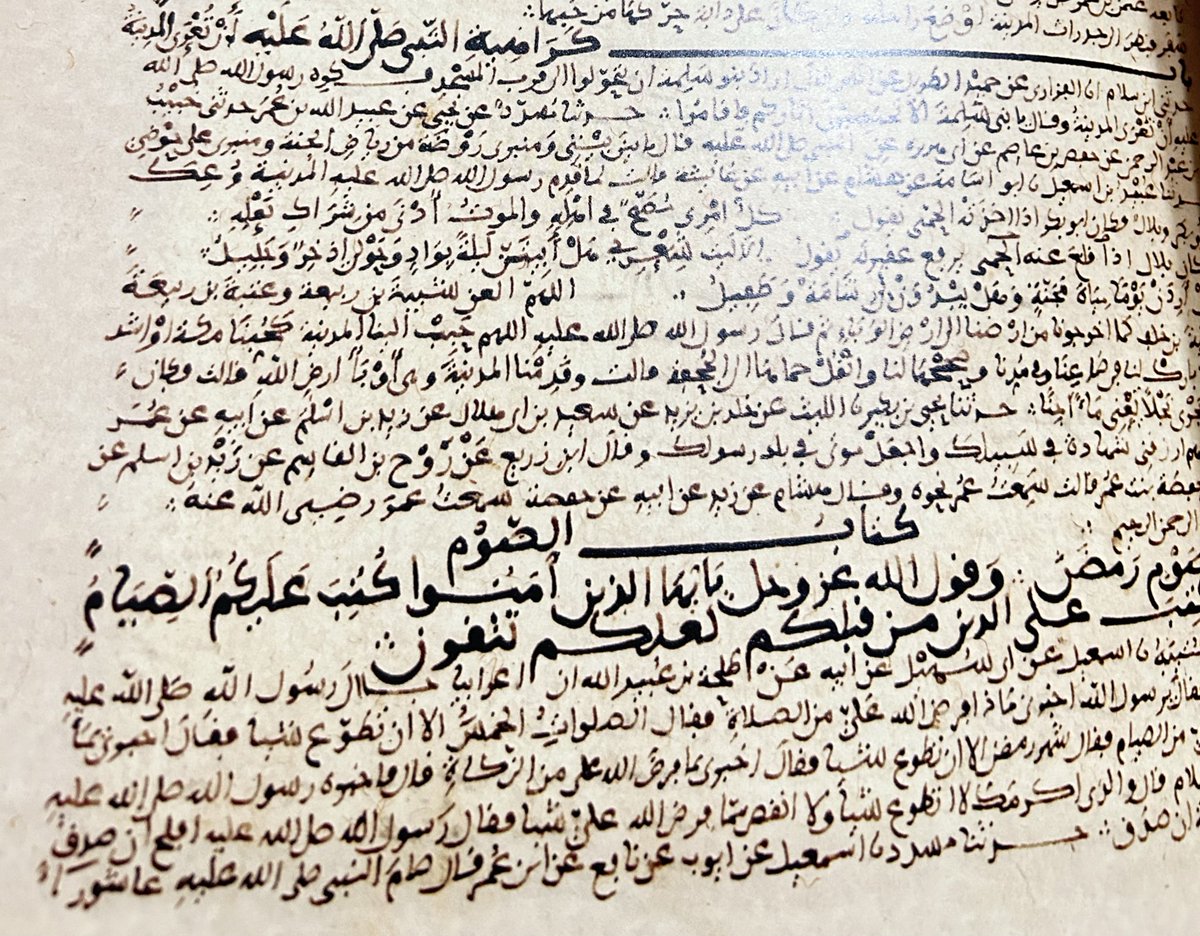 سفر فنظر الى جدرات المدينة اوضع راحلته وان كان على دابة حركها من حبها
باب كراهية النبي صلى الله عليه أن تعرى المدينة
حدثني ابن سلام انا الفزاري عن حميد الطويل عن انس قال اراد بنو سلمة ان يتحولوا الى قرب المسجد فكره رسول الله صلى الله
عليه أن تعرى المدينة وقال يا بني سلمة الا تحتسبون اثاركم فاقاموا حدثنا مسدد عن يحيى عن عبيد الله بن عمر حدثني خبيب
بن عبد الرحمن عن حفص بن عاصم عن ابي هريرة عن النبي صلى الله عليه قال ما بين بيتي ومنبري روضة من رياض الجنة ومنبري على حوضي
حدثنا عبيد بن اسمعيل نا ابو اسامة عن هشام عن ابيه عن عائشة قالت لما قدم رسول الله صلى الله عليه المدينة وعك
بكر وبلال فكان ابو بكر اذا اخذته الحمى يقول كل امرئ مصبح في اهله والموت أدنى من شراك نعله
كان بلال اذا اقلع عنه الحمى يرفع عقيرته يقول الا ليت شعري هل أبيتن ليلة بواد وحولي اذخر وجليل
أردن يوما مياه مجنة وهل يبدون لي شامة وطفيل اللهم العن شيبة بن ربيعة وعتبة بن ربيعة
بن خلف كما اخرجونا من ارضنا الى ارض الوباء ثم قال رسول الله صلى الله عليه اللهم حبب الينا المدينة كحبنا مكة او اشد
بارك لنا في صاعنا وفي مدنا وصححها لنا وانقل حماها الى الجحفة قالت وقدمنا المدينة وهي أوبأ ارض الله قالت فكان
يجري نجلا يعني ماء اجنا حدثنا يحيى بن بكير نا الليث عن خلد بن يزيد عن سعيد بن ابي هلال عن زيد بن اسلم عن ابيه عن عمر
ارزقني شهادة في سبيلك واجعل موتي في بلد رسولك وقال ابن زريع عن روح بن القاسم عن زيد بن اسلم عن
حفصة بنت عمر قالت سمعت عمر نحوه وقال هشام عن زيد عن ابيه عن حفصة سمعت عمر رضي الله عنه
الرحمن الرحيم كتاب الصوم
صوم رمضن وقول الله عز وجل يايها الذين امنوا كتب عليكم الصيام
كتب على الذين من قبلكم لعلكم تتقون
قتيبة نا اسمعيل عن ابي سهيل عن ابيه عن طلحة بن عبيد الله ان اعرابيا جا الى رسول الله صلى الله عليه
فقال يا رسول الله اخبرني ماذا افرض الله علي من الصلاة فقال الصلوات الخمس الا ان تطوع شيا فقال اخبرني بما
من الصيام فقال شهر رمضن الا ان تطوع شيا فقال اخبرني بما فرض الله علي من الزكاة قال فاخبره رسول الله صلى الله عليه
قال والذي اكرمك لا اتطوع شيأ ولا انقص مما فرض الله علي شيا فقال رسول الله صلى الله عليه افلح ان صدق
ان صدق حدثنا مسدد نا اسمعيل عن ايوب عن نافع عن ابن عمر قال صام النبي صلى الله عليه عاشورا